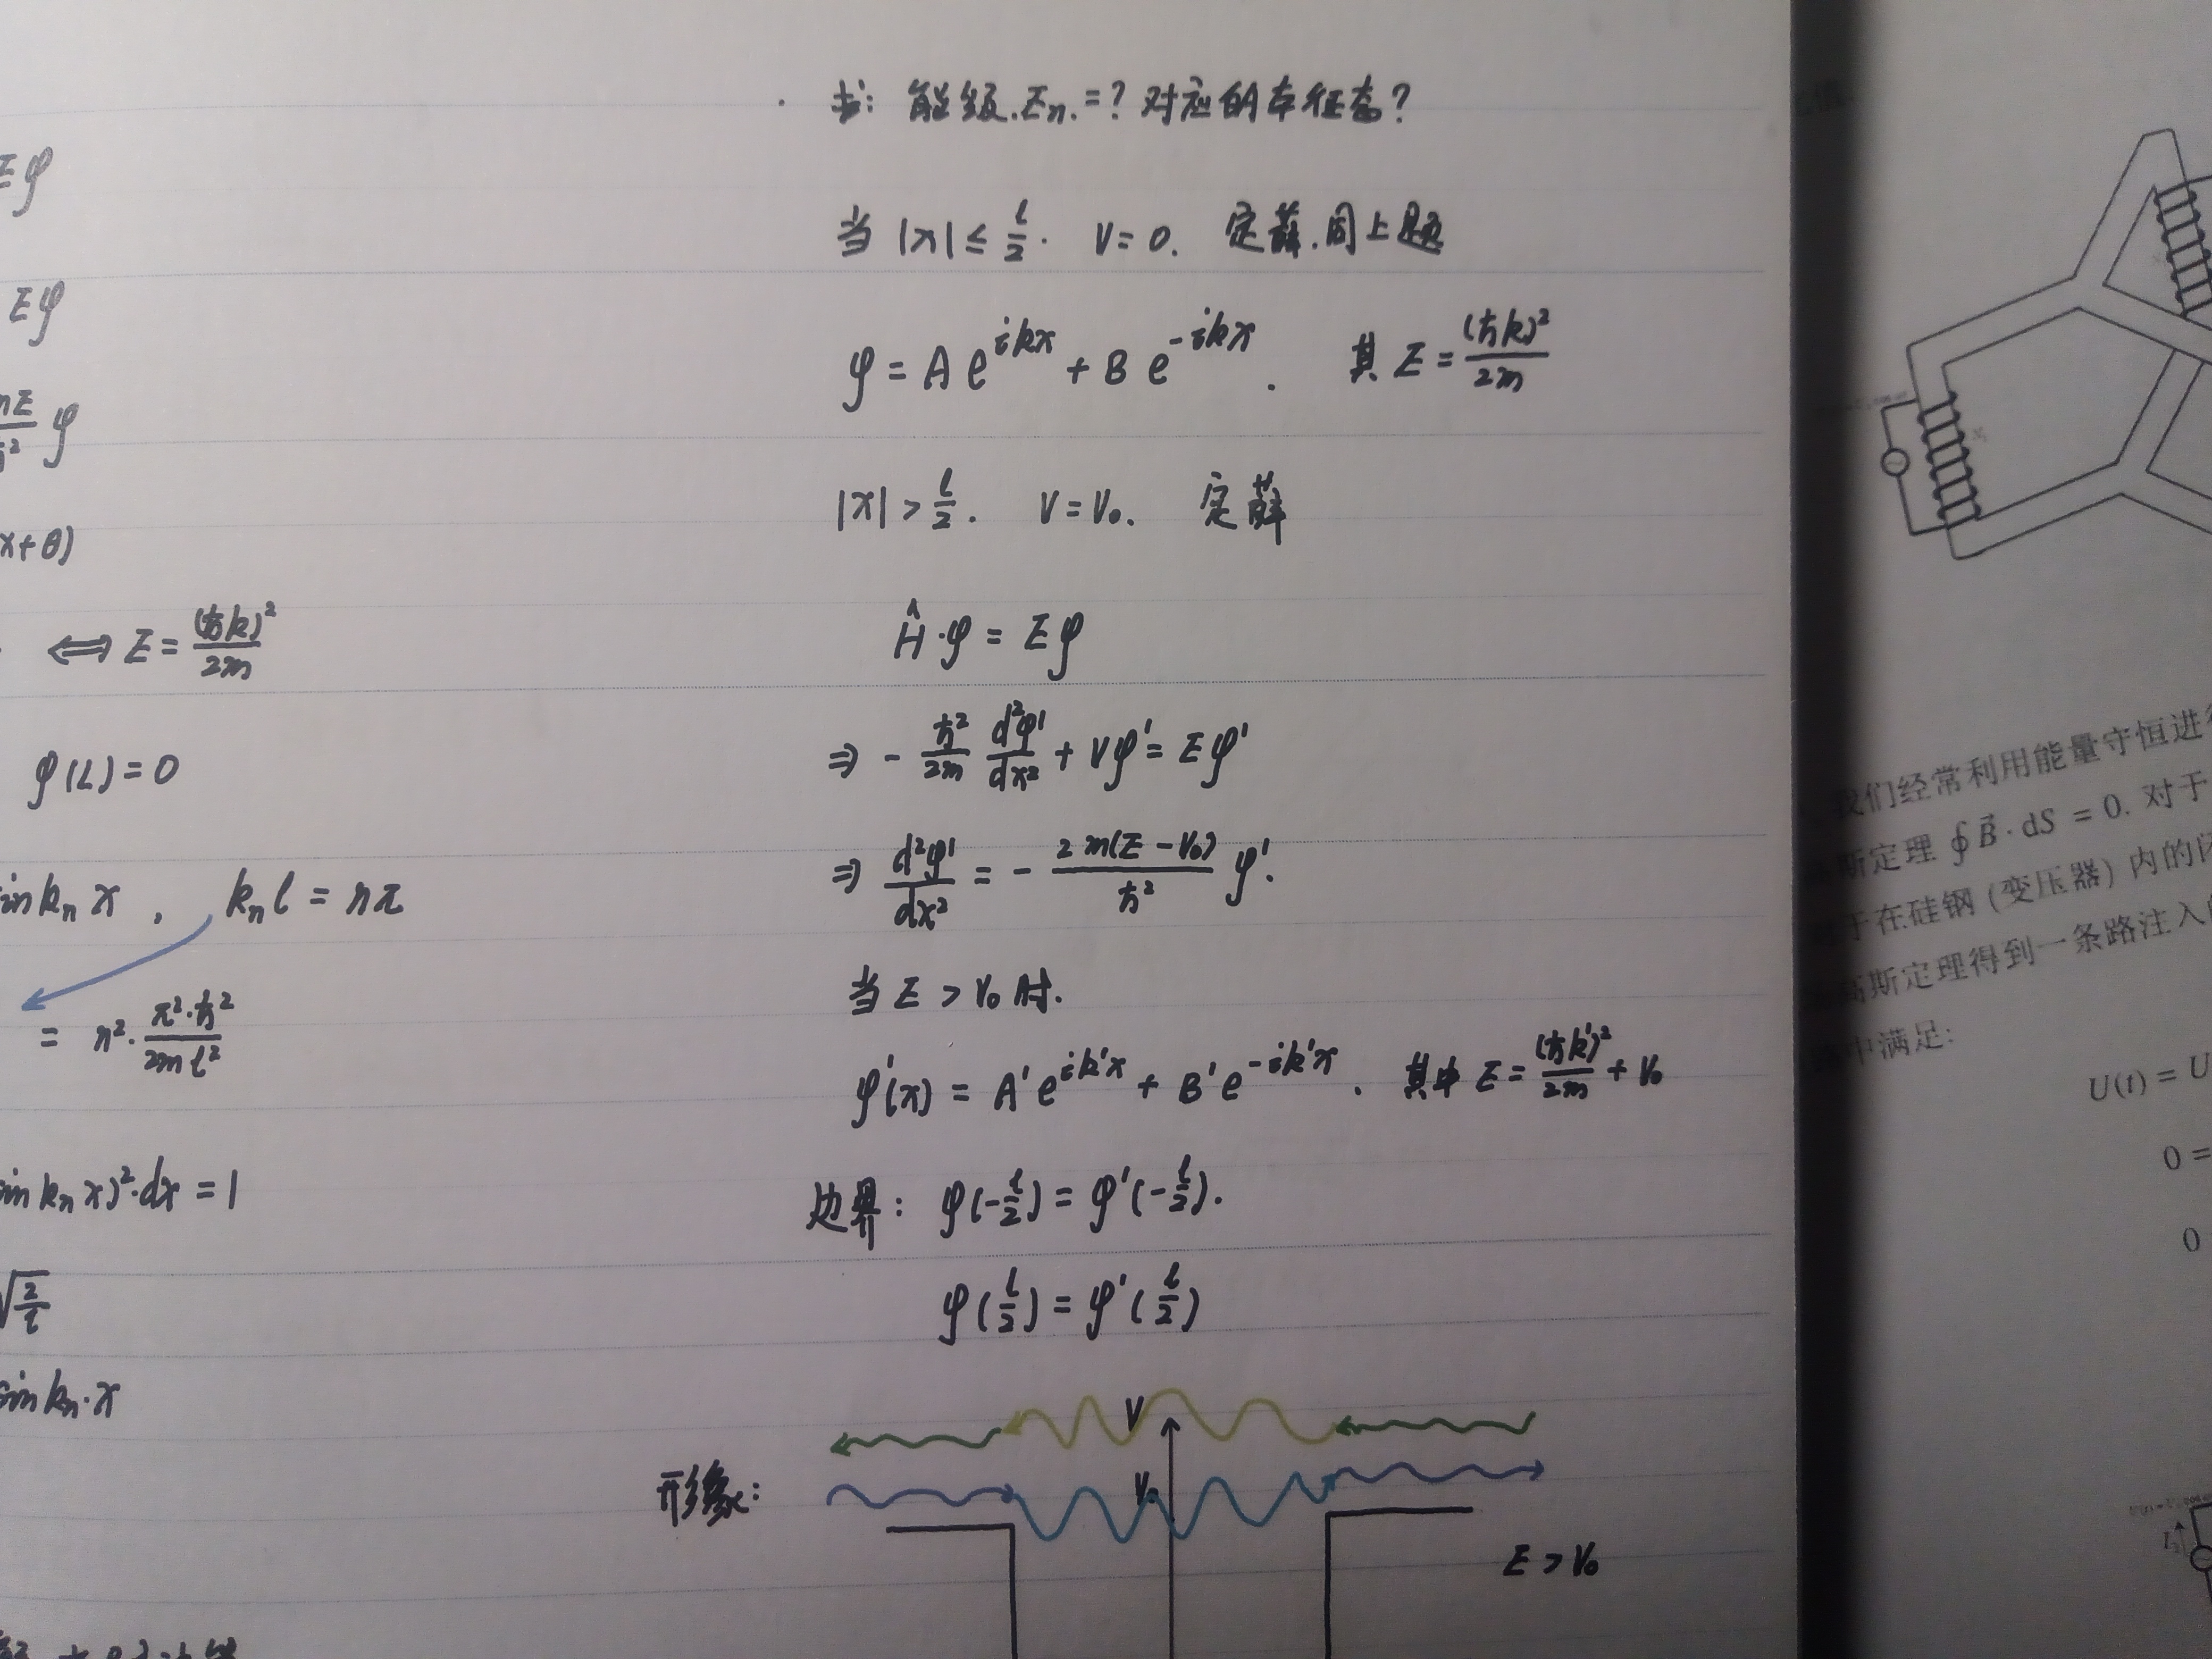 Eφ
Eφ
φ
x+θ)
⟺ E = (ħk)²/2m
φ(L) = 0
sin kₙ x , kₙ l = nπ
= n² · π²·ħ²/2ml²
sin kₙ x)²·dx = 1
√(2/l)
sin kₙ·x
求: 能级.Eₙ.=? 对应的本征态?
当 |x| ≤ l/2. V = 0. 定薛.同上题
φ = A e^{ikx} + B e^{-ikx}. 其 E = (ħk)²/2m
|x| > l/2. V = V₀. 定薛
Ĥ·φ = Eφ
⇒ - ħ²/2m d²φ'/dx² + Vφ' = Eφ'
⇒ d²φ'/dx² = - 2m(E - V₀)/ħ² φ'.
当 E > V₀ 时.
φ'(x) = A' e^{ik'x} + B' e^{-ik'x}. 其中 E = (ħk')²/2m + V₀
边界: φ(-l/2) = φ'(-l/2).
φ(l/2) = φ'(l/2)
形象:
V
V₀
E > V₀
我们经常利用能量守恒进行
斯定理 ∮ B⃗ · dS = 0. 对于
于在硅钢 (变压器) 内的闭
高斯定理得到一条路注入的
中满足:
U(t) = U
0 =
0